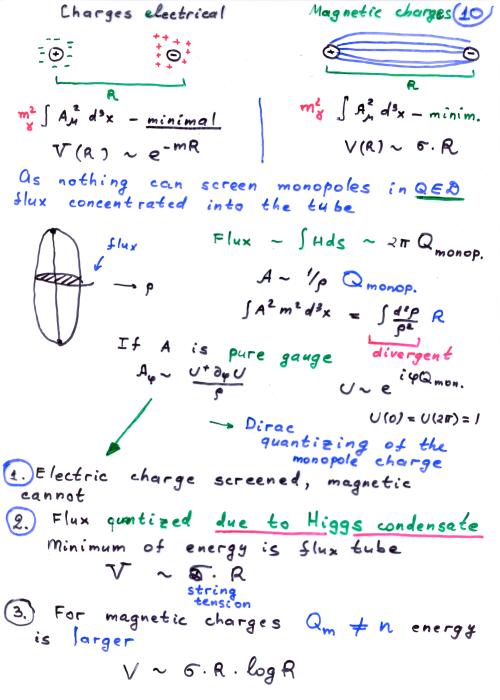 Charges electrical
Magnetic charges 10
R
R
m²γ ∫ Aμ² d³x - minimal
m²γ ∫ Aμ² d³x - minim.
V(R) ~ e^-mR
V(R) ~ σ·R
As nothing can screen monopoles in QED
flux concentrated into the tube
flux
ρ
Flux ~ ∫Hds ~ 2π Qmonop.
A ~ 1/ρ Qmonop.
∫A² m² d³x = ∫ d²ρ/ρ² R
divergent
If A is pure gauge
Aφ ~ U⁺∂φU/ρ
U ~ e^iφQmon.
U(0) = U(2π) = 1
→ Dirac
quantizing of the
monopole charge
1. Electric charge screened, magnetic
cannot
2. Flux quntized due to Higgs condensate
Minimum of energy is flux tube
V ~ σ·R
string
tension
3. For magnetic charges Qm ≠ n energy
is larger
V ~ σ·R·logR